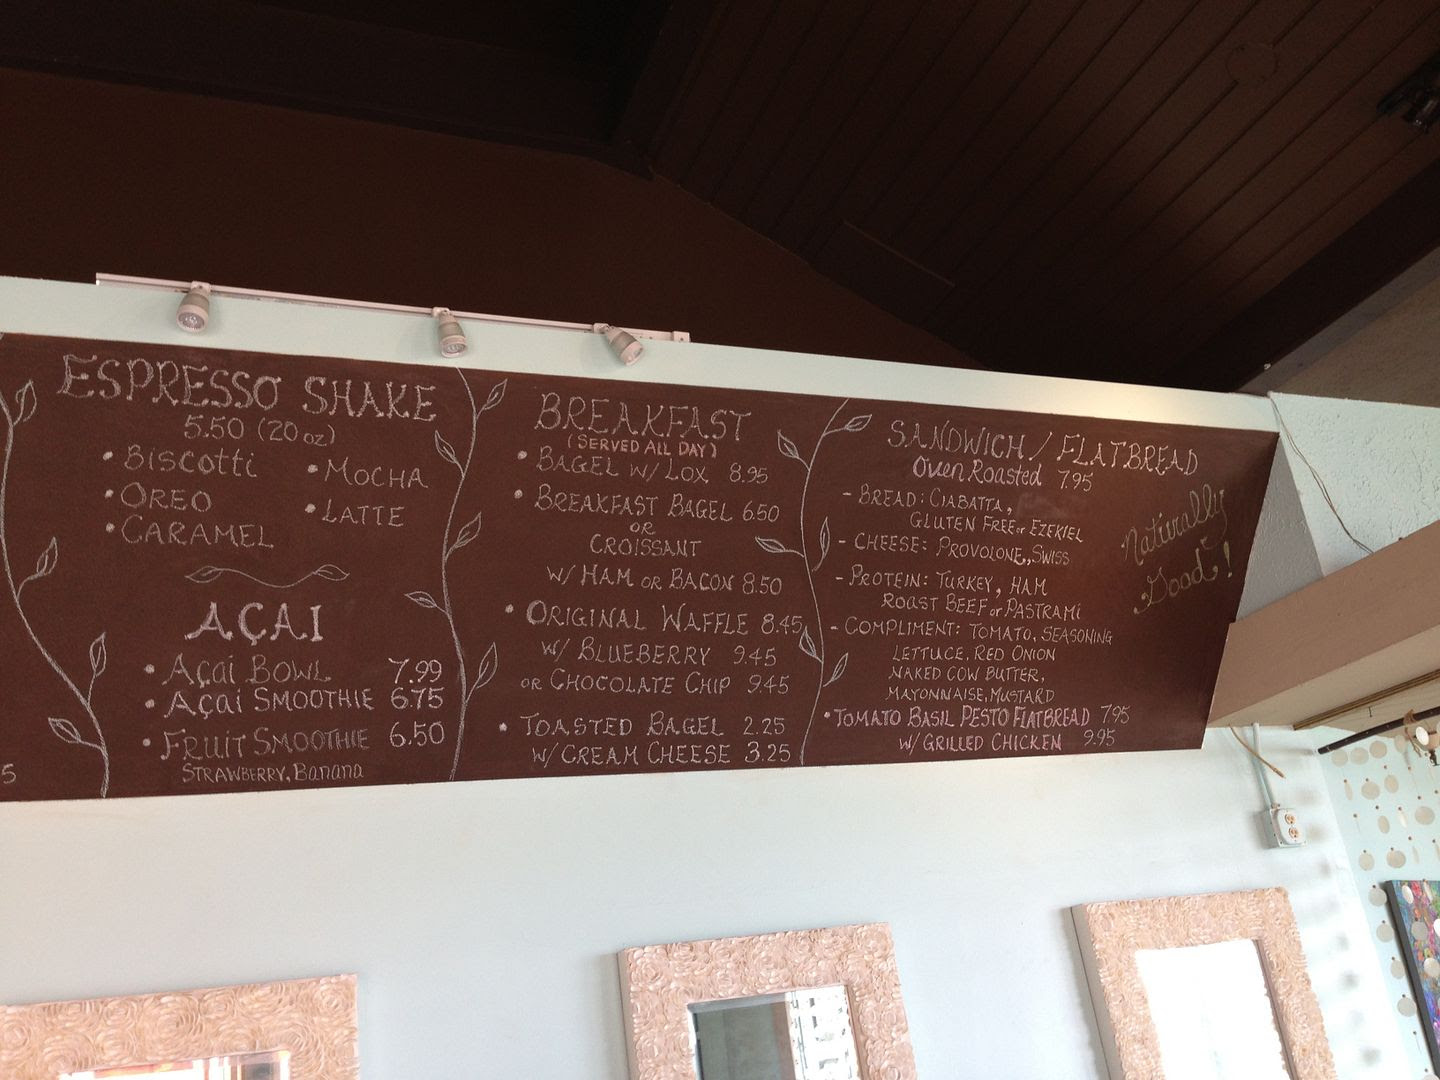 5
ESPRESSO SHAKE
5.50 (20 oz)
• BISCOTTI
• OREO
• CARAMEL
• MOCHA
• LATTE
AÇAI
• AÇAI BOWL 7.99
• AÇAI SMOOTHIE 6.75
• FRUIT SMOOTHIE 6.50
STRAWBERRY, Banana
BREAKFAST
(SERVED ALL DAY)
• BAGEL W/ LOX 8.95
• BREAKFAST BAGEL 6.50
OR
CROISSANT
W/ HAM OR BACON 8.50
• ORIGINAL WAFFLE 8.45
W/ BLUEBERRY 9.45
OR CHOCOLATE CHIP 9.45
• TOASTED BAGEL 2.25
W/ CREAM CHEESE 3.25
SANDWICH / FLATBREAD
Oven Roasted 7.95
- BREAD: CIABATTA,
GLUTEN FREE or EZEKIEL
- CHEESE: PROVOLONE, SWISS
- PROTEIN: TURKEY, HAM
ROAST BEEF or PASTRAMI
- COMPLIMENT: TOMATO, SEASONING
LETTUCE, RED ONION
NAKED COW BUTTER,
MAYONNAISE, MUSTARD
• TOMATO BASIL PESTO FLATBREAD 7.95
W/ GRILLED CHICKEN 9.95
Naturally
Good!